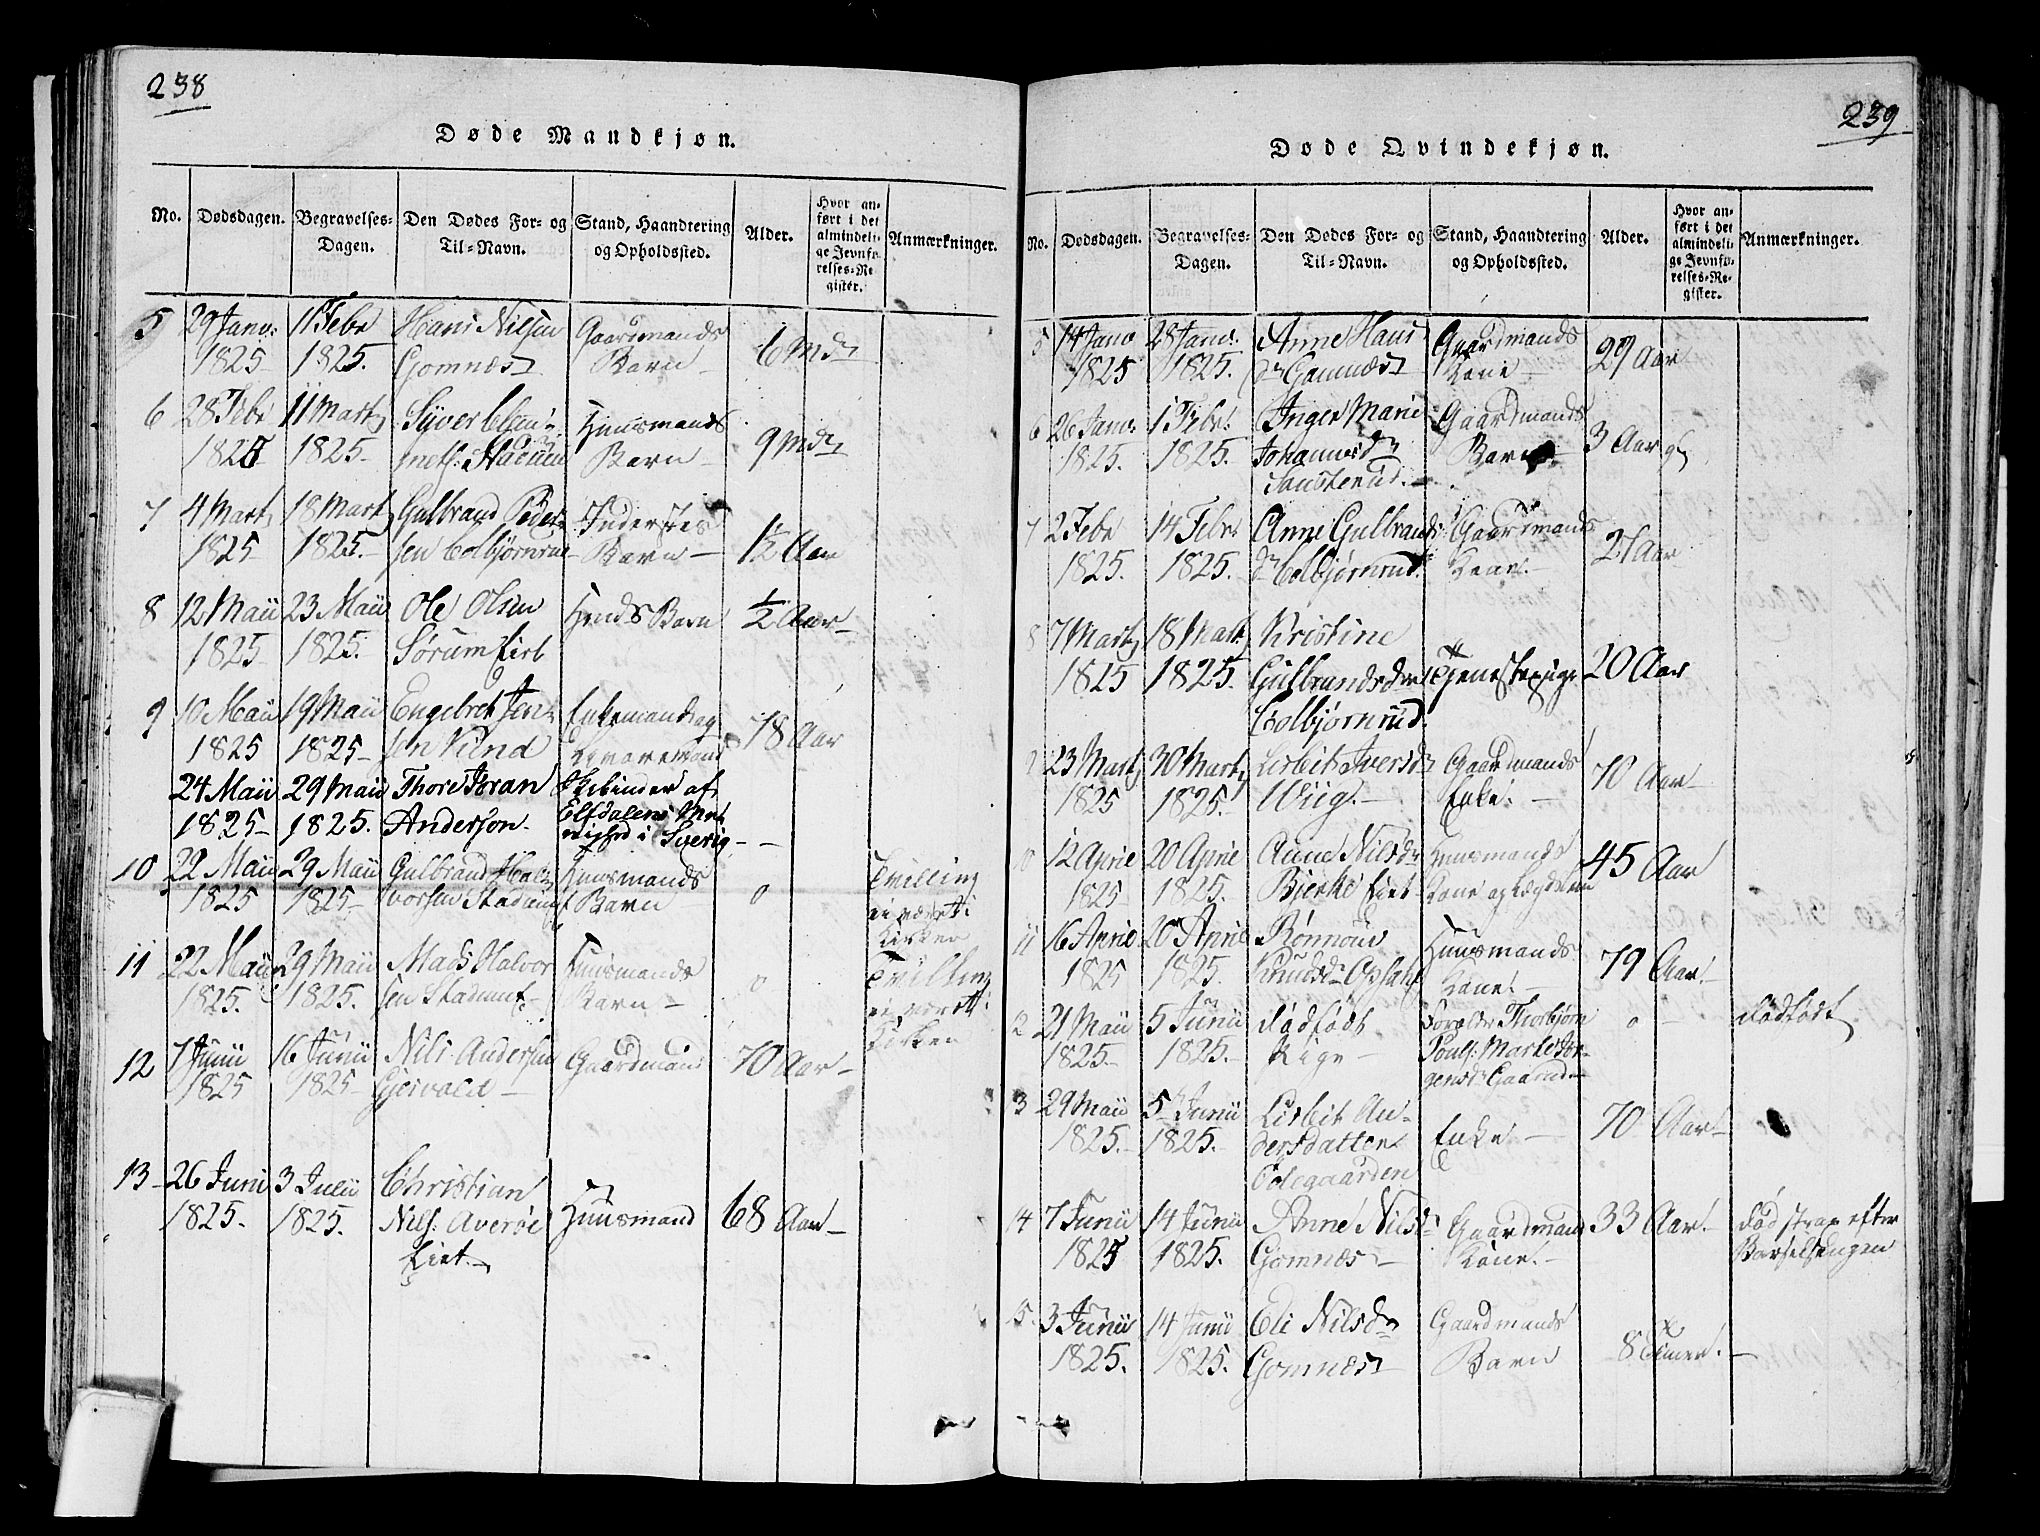 238
Døde Mandkjøn.
No. Dødsdagen. Begravelses-Dagen. Den Dødes For- og Til-Navn. Stand, Haandtering og Opholdssted. Alder. Hvor anført i det almindelige Jevnførelses-Register. Anmærkninger.
5 29 Janv: 11 Febr Hans Nilsen Gaardmands 6 Mdr
1825 1825. Gomnæs Barn
6 28 Febr 11 Martz Syver Huusmands 9 Mdr
1825 1825. Barn
7 4 Martz 18 Martz Gulbrand Peder- Inderstes 1½ Aar
1825 1825. sen Colbjørnrue Barn
8 12 Maii 23 Maii Ole Olsen Barn ½ Aar
1825 1825. Sørum Eie
9 10 Maii 19 Maii Engebret Jen- Enkemand og 78 Aar
1825 1825 sen Viend
24 Maii 29 Maii Thore Joran Skibinder af
1825 1825. Anderson Elfdalens Me-
nighed i Sverig
10 22 Maii 29 Maii Gulbrand Hal- Huusmands o Tvilling
1825 1825 vorsen Barn ei været i
Kirken
11 22 Maii 29 Maii Mads Halvor Huusmands o Tvilling
1825. 1825. sen Barn ei været i
Kirken
12 7 Junii 16 Junii Nils Andersen Gaardmand 70 Aar
1825 1825 Gjervold
13 26 Juni 3 Julii Christian Huusmand 68 Aar
1825. 1825. Nils: Averøe
Eiet.
239
Døde Qvindekjøn.
No. Dødsdagen. Begravelses-Dagen. Den Dødes For- og Til-Navn. Stand, Haandtering og Opholdssted. Alder. Hvor anført i det almindelige Jevnførelses-Register. Anmærkninger.
5 14 Janv 28 Janv. Anne Hans Gaardmands 29 Aar
1825 1825. dr Gomnæs Kone
6 26 Janv. 1 Febr. Inger Marie Gaardmands 3 Aar
1825. 1825. Johannesdr Barn
7 2 Febr 14 Febr Anne Gulbrands Gaardmands
1825. 1825. dr Colbjørnrud. Kone
8 7 Martz 18 Mart. Kristine Tjenestepige 20 Aar
1825 1825. Gulbrandsdr
Colbjørnrud.
23 Martz 30 Martz Lisbit Iversdr Gaardmands 70 Aar
1825 1825. Wiig. Enke.
10 12 Aprie 20 Aprie Anne Nilsdr Huusmands 45 Aar
1825 1825. Bjerke Eiet Kone og
11 16 Aprie 20 Aprie Rønnoug Huusmands 79 Aar
1825 1825. Knudsdr Opsahl Kone
2 21 Maii 5 Junii dødfødt Forælder Thorbjørn o dødfødt
1825. 1825. Pige Pouls: Marte Jør-
gensdr Gaarud
3 29 Maii 5 Junii Lisbit An- Enke 70 Aar
1825. 1825. dersdatter
14 7 Junii 14 Junii Anne Nilsdr Gaardmand 33 Aar død strax efter
1825 1825. Gomnæs Kone. Barselsengen
15. 3 Junii 14 Junii Eli Nilsdr Gaardmands 8 Timer.
1825. 1825. Gomnæs Barn